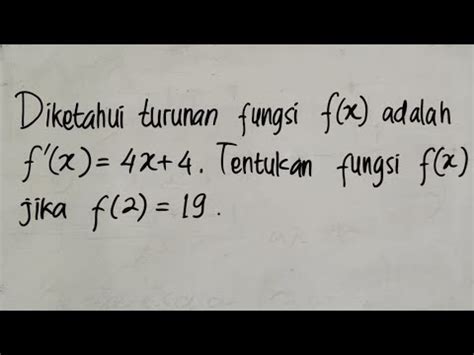 Diketahui turunan fungsi f(x) adalah
f'(x) = 4x+4. Tentukan fungsi f(x)
jika f(2) = 19.